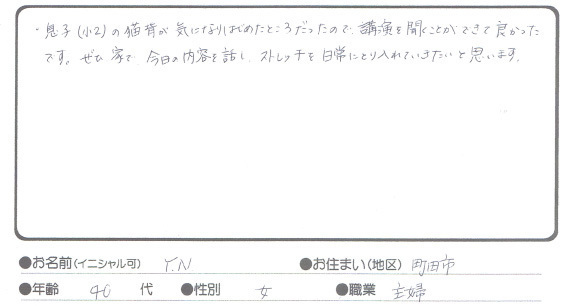 ・息子(小2)の猫背が気になりはじめたところだったので、講演を聞くことができて良かった
です。ぜひ家で今日の内容を話し、ストレッチを日常にとり入れていきたいと思います。
●お名前(イニシャル可) Y.N ●お住まい(地区) 町田市
●年齢 40 代 ●性別 女 ●職業 主婦